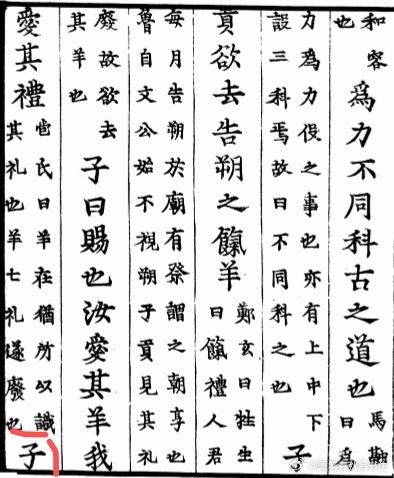 和容也為力不同科古之道也馬融曰為
力為力役之事也亦有上中下設三科焉故曰不同科之也子
貢欲去告朔之餼羊鄭玄曰牲生曰餼禮人君
每月告朔於廟有祭謂之朝享也魯自文公始不視朔子貢見其礼
廢故欲去其羊也子曰賜也汝愛其羊我
愛其禮苞氏曰羊在猶所以識其礼也羊亡礼遂廢也子